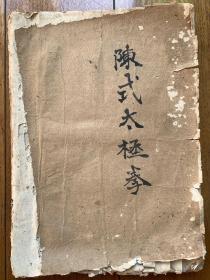 陳式太極拳